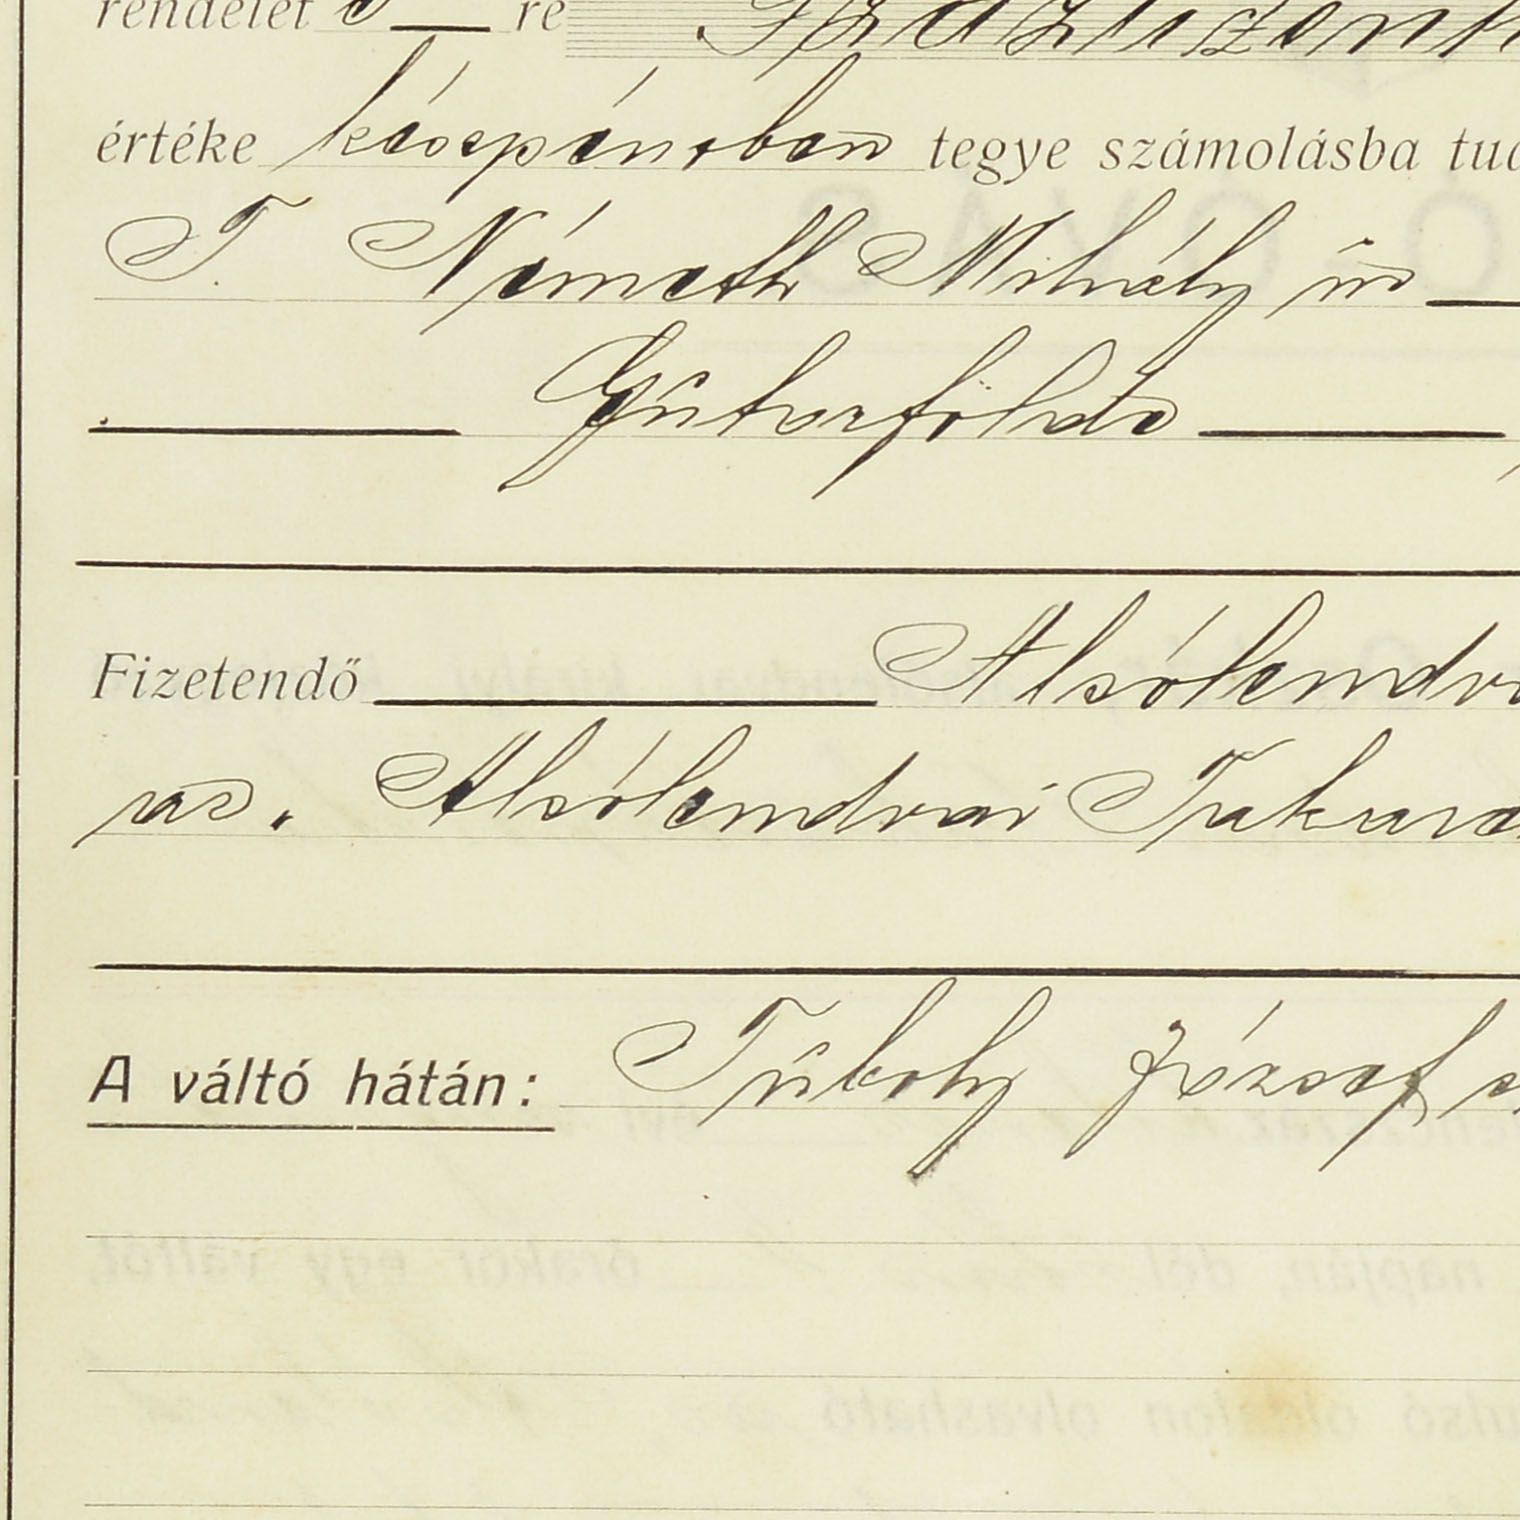 rendelet e re Száztizenh
értéke készpénzben tegye számolásba tud
T. Németh Mihály úr
Gutorfölde
Fizetendő Alsólendva
az. Alsólendvai Takaré
A váltó hátán: Tüboly József s